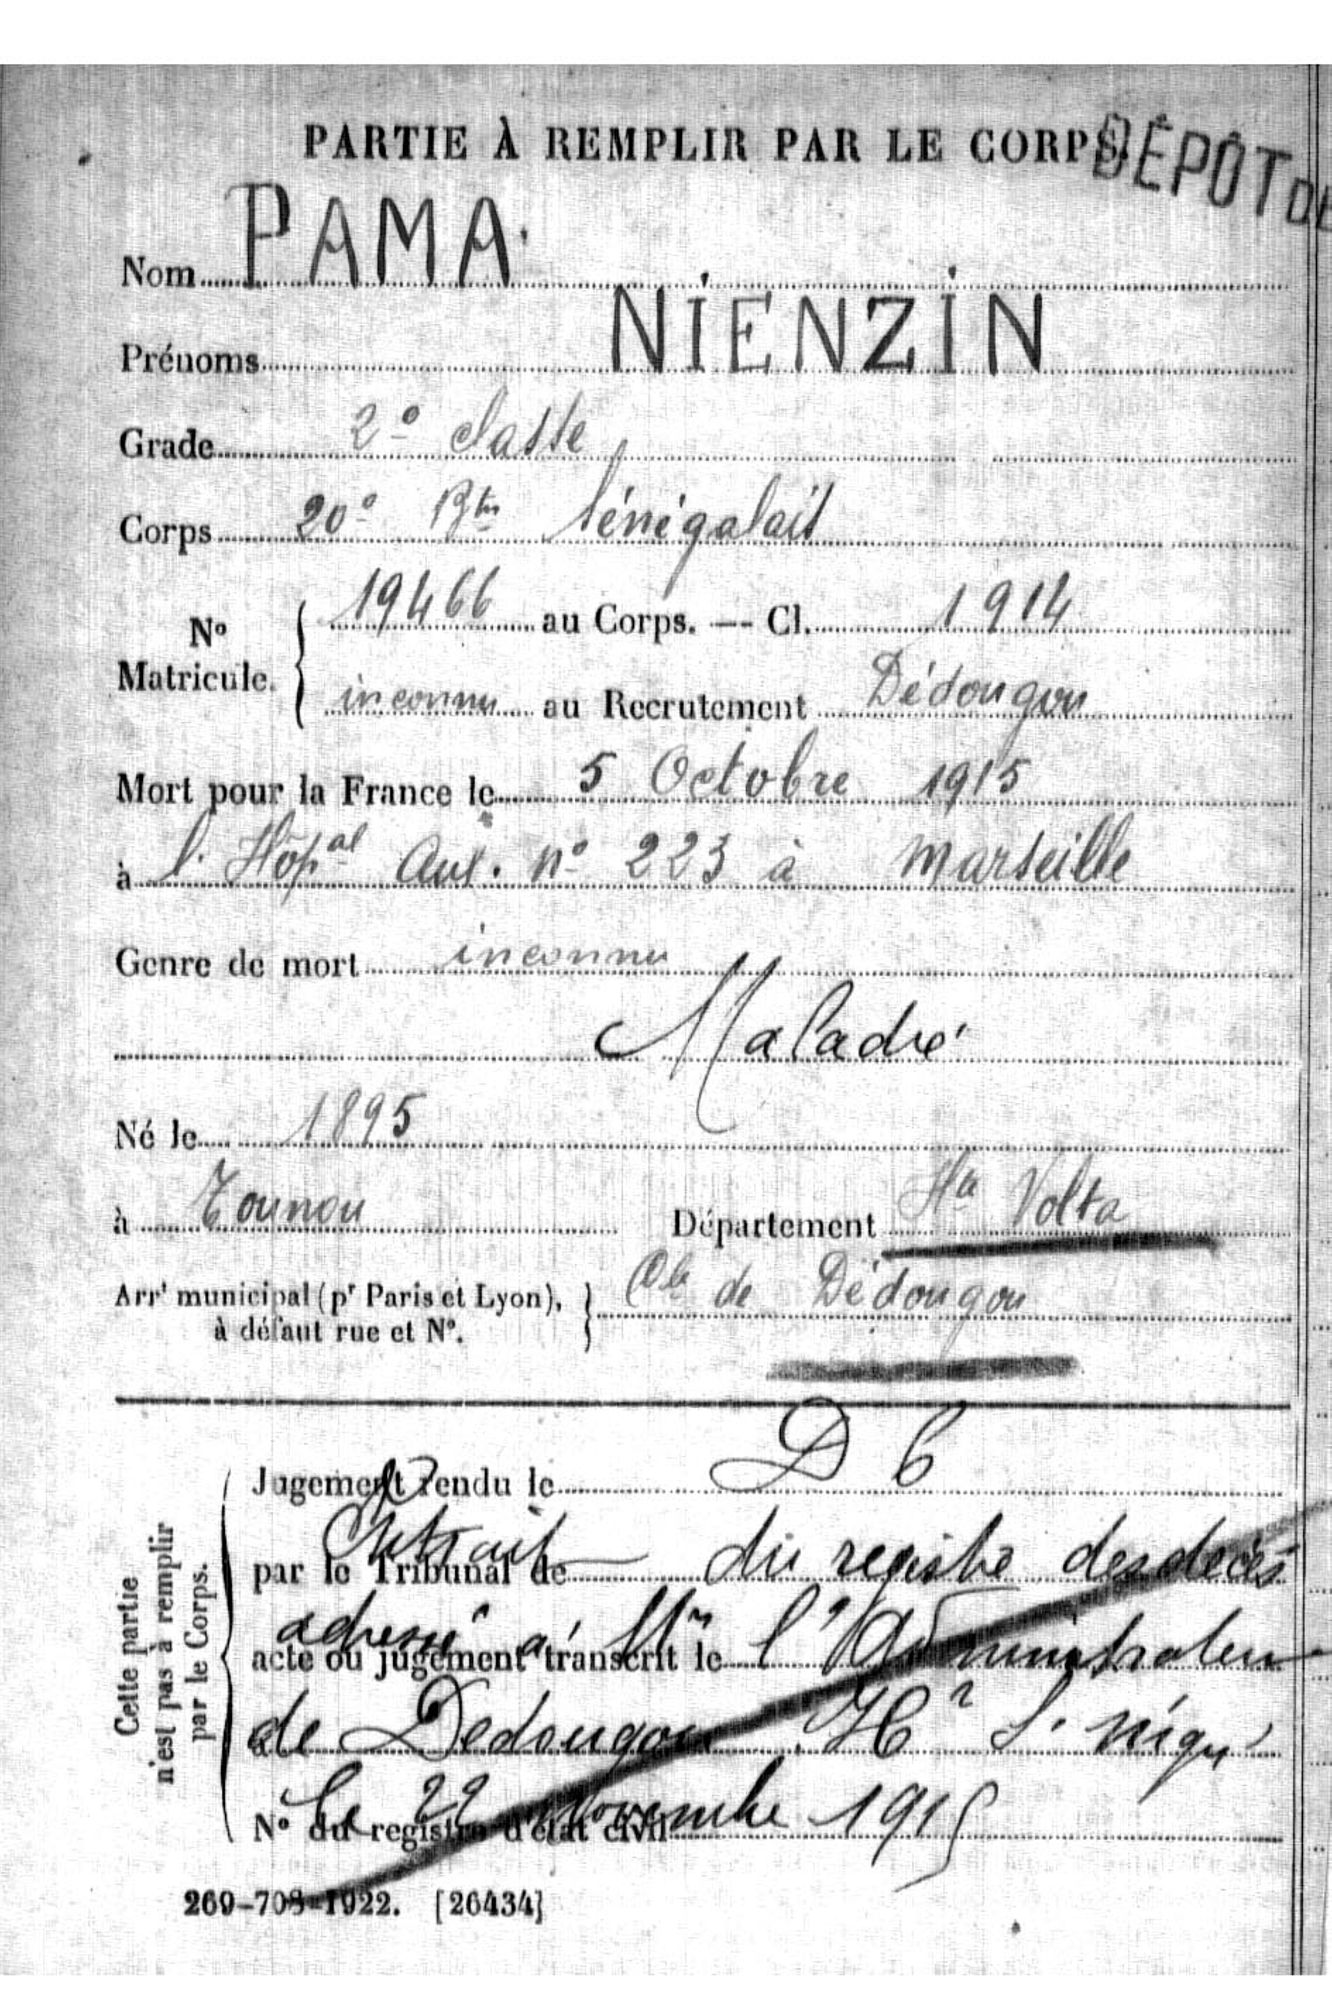 PARTIE À REMPLIR PAR LE CORPS.
DÉPÔT DE
Nom PAMA
Prénoms NIENZIN
Grade 2e classe
Corps 20e Btn Sénégalais
No Matricule. 19466 au Corps. — Cl. 1914
inconnu au Recrutement Dédougou
Mort pour la France le 5 Octobre 1915
à l'Hopal Aux. no 223 à Marseille
Genre de mort inconnu
Maladie
Né le 1895
à Tounou Département Hte Volta
Arrt municipal (pr Paris et Lyon), à défaut rue et No. } Cle de Dédougou
D 6
Cette partie n'est pas à remplir par le Corps.
Jugement rendu le
par le Tribunal de
Extrait du registre des décès
acte ou jugement transcrit le
adressé à Mr l'Administrateur
de Dedougou Ht S. Niger
le 22 Novembre 1915
No du registre d'état civil
269-708-1922. [26434]